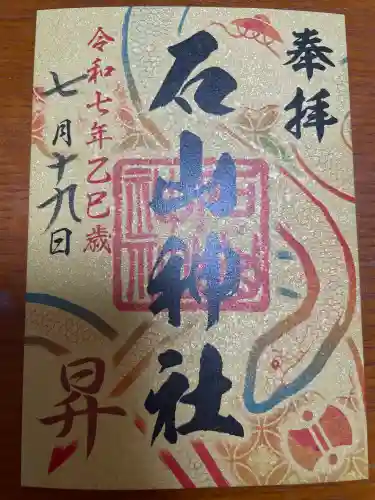 奉拝
石山神社
令和七年乙巳歳
七月十九日
昇